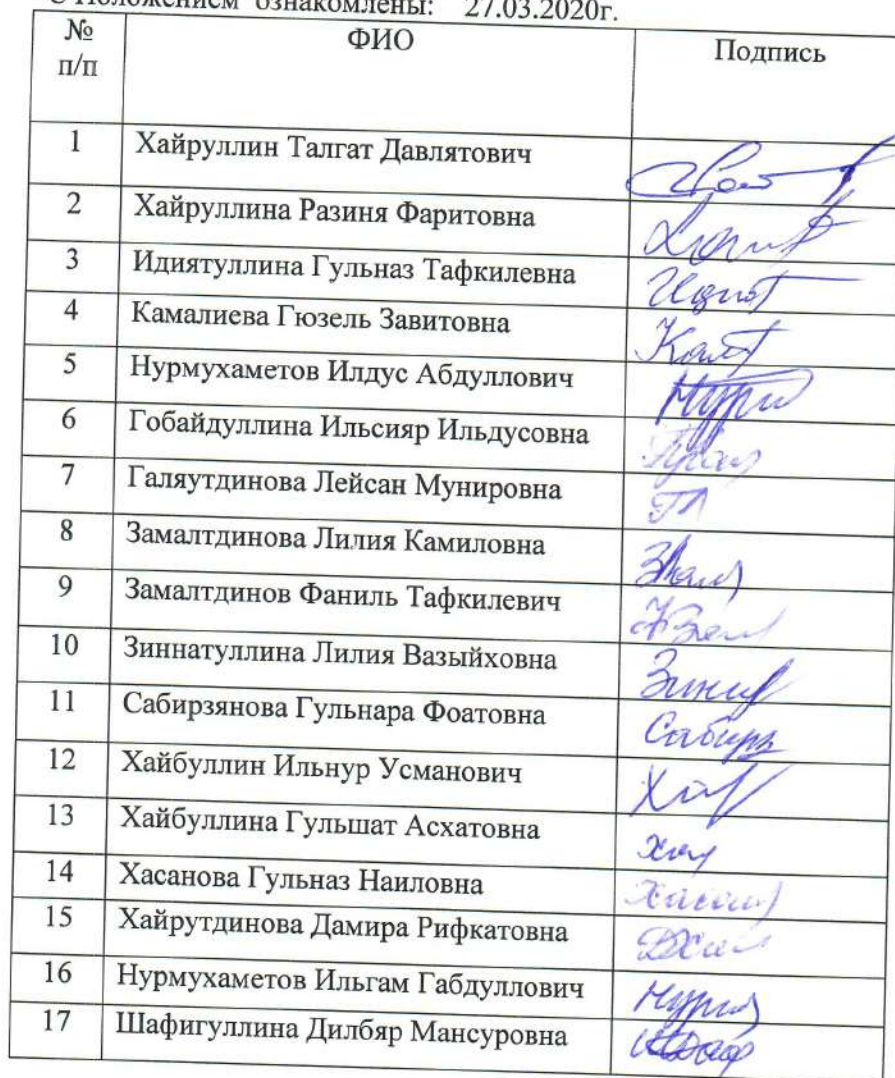 С Положением ознакомлены: 27.03.2020г.
№ п/п ФИО Подпись
1 Хайруллин Талгат Давлятович
2 Хайруллина Разиня Фаритовна
3 Идиятуллина Гульназ Тафкилевна
4 Камалиева Гюзель Завитовна
5 Нурмухаметов Илдус Абдуллович
6 Гобайдуллина Ильсияр Ильдусовна
7 Галяутдинова Лейсан Мунировна
8 Замалтдинова Лилия Камиловна
9 Замалтдинов Фаниль Тафкилевич
10 Зиннатуллина Лилия Вазыйховна
11 Сабирзянова Гульнара Фоатовна
12 Хайбуллин Ильнур Усманович
13 Хайбуллина Гульшат Асхатовна
14 Хасанова Гульназ Наиловна
15 Хайрутдинова Дамира Рифкатовна
16 Нурмухаметов Ильгам Габдуллович
17 Шафигуллина Дилбяр Мансуровна